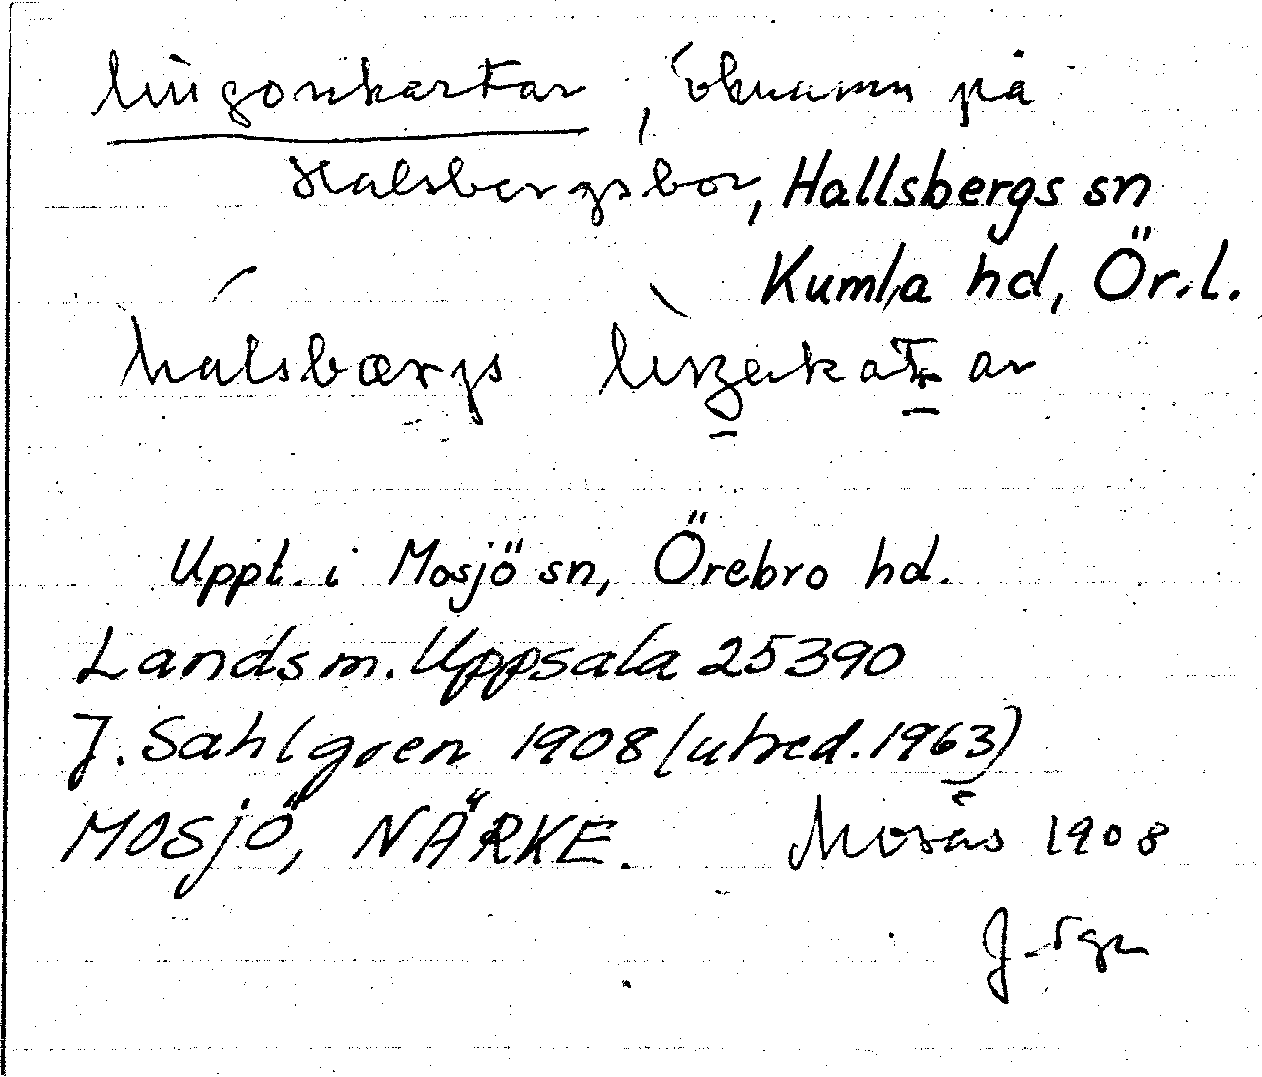 lingonkartar, öknamn på
Halsbergsbor, Hallsbergs sn
Kumla hd, Ör. l.
halsbærgs
Uppt. i Mosjö sn, Örebro hd.
Landsm. Uppsala 25390
J. Sahlgren 1908 (utred. 1963)
MOSJÖ, NÄRKE. Mosås 1908